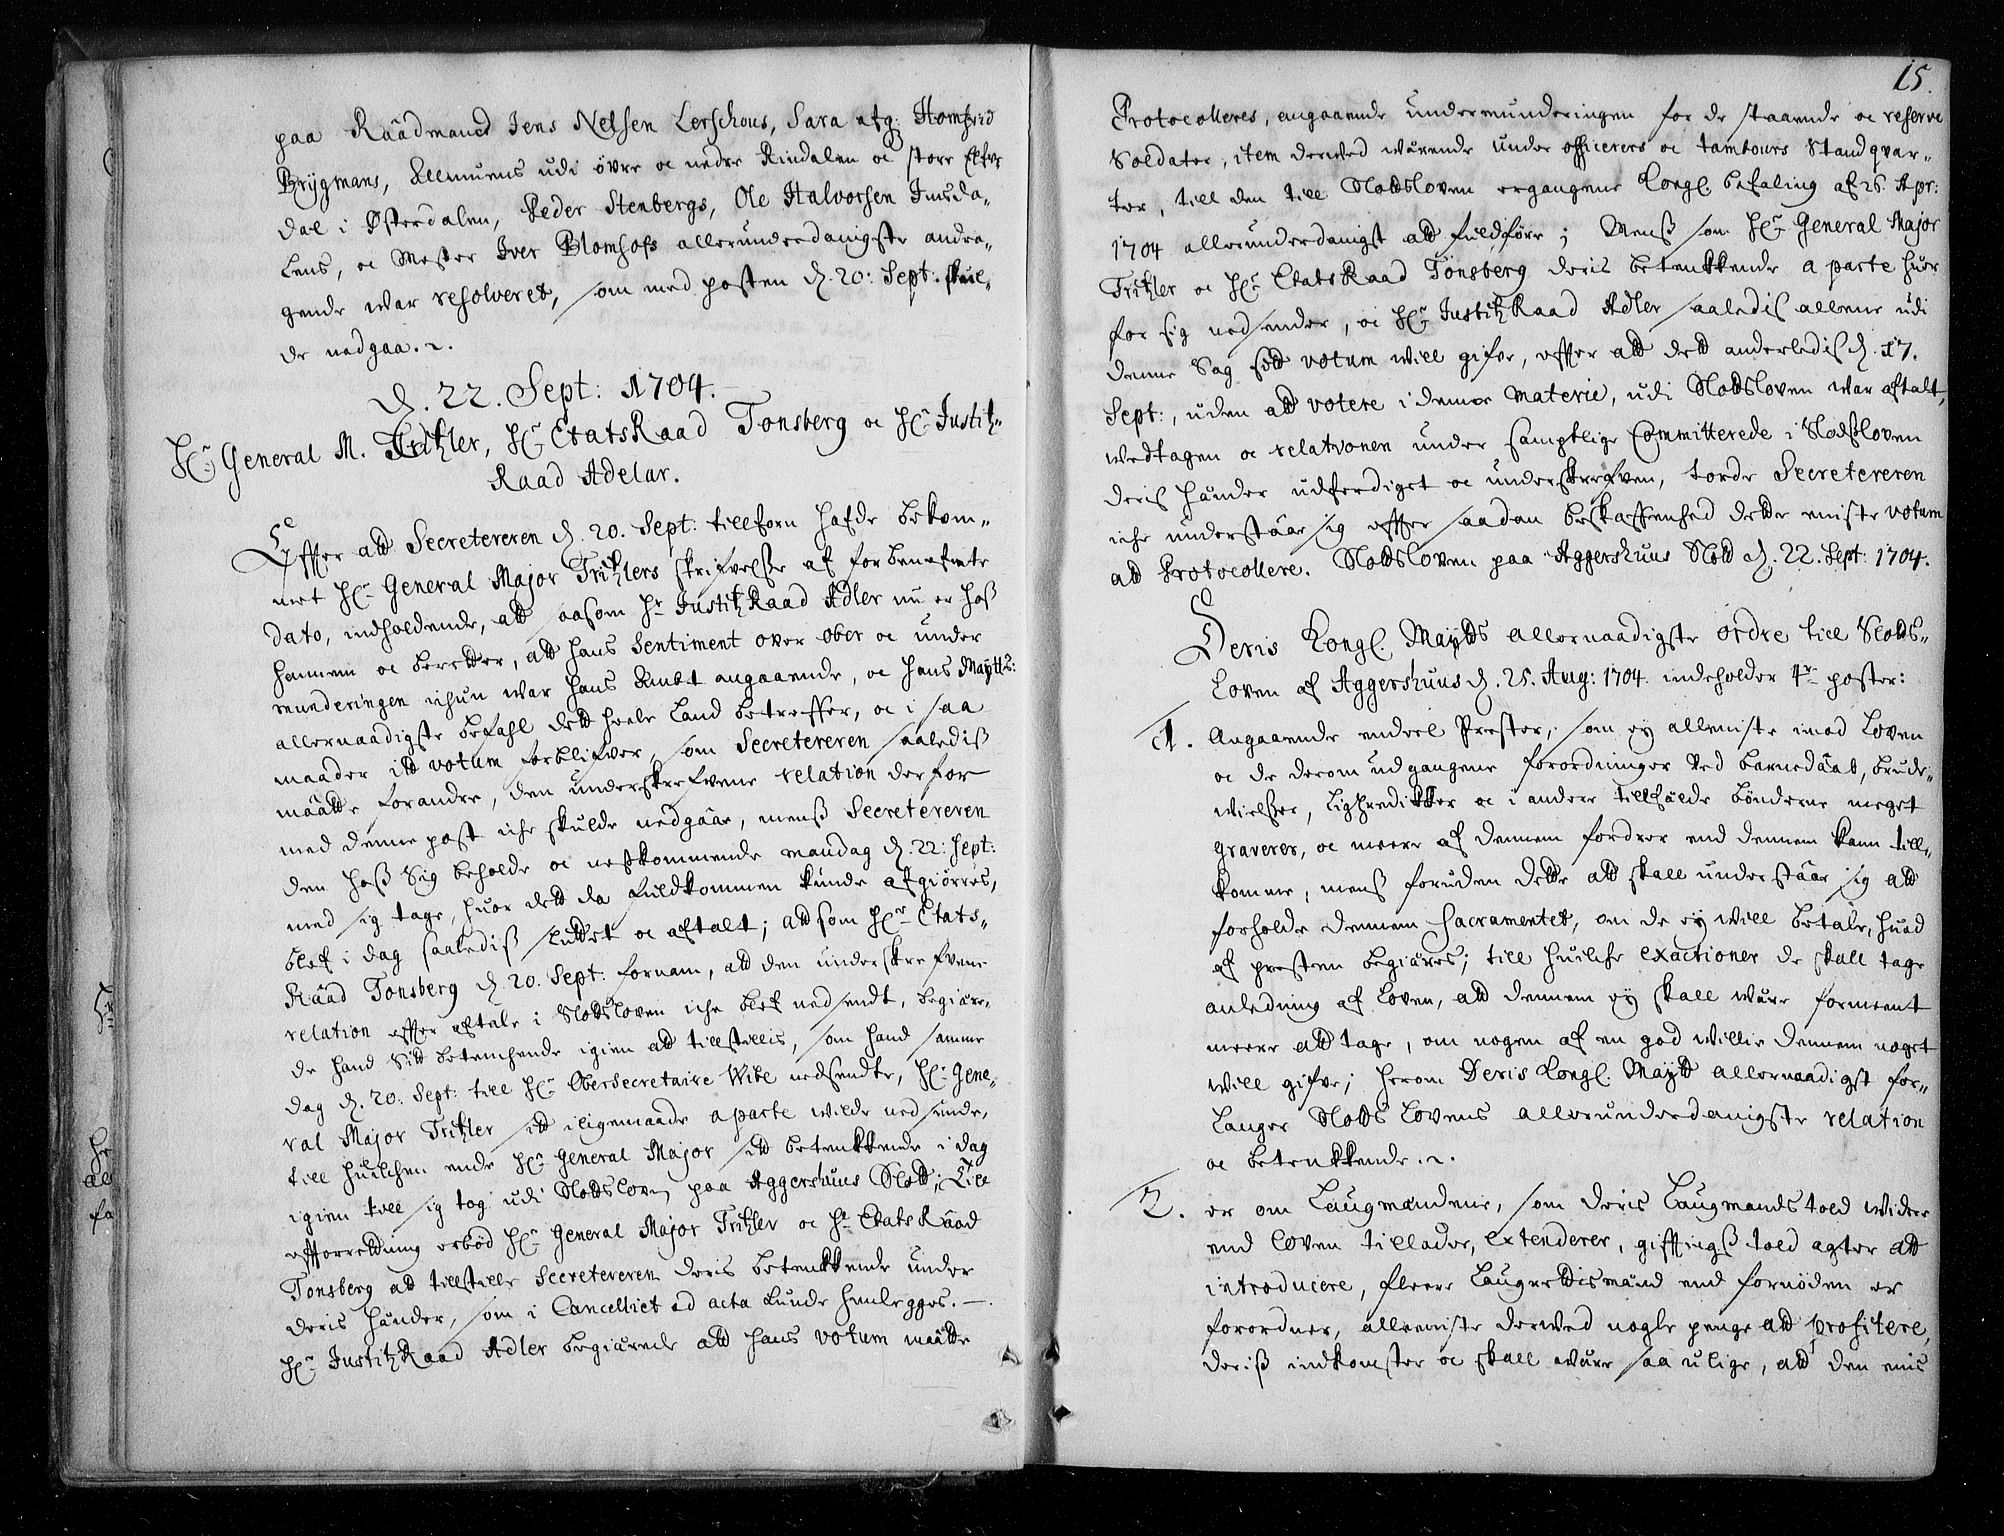 paa Raadmand Jens Nelsen Lerschous, Sara afg: Homfred
Brÿgmans, Allmuens udi öfre oc nedre Rindalen oc store Elfve
dal i Østerdalen, Peder Stenbergs, Ole Halvorsen Jmsda-
lens, oc Mester Iver Blomhofs allerunderdanigste andra-
gende war resolveret, som med posten d. 20: Sept: skul-
de nedgaa. 
d. 22. Sept: 1704.
Hr. General M. Tritzler, Hr. EtatsRaad Tonsberg oc Hr. Justitz-
Raad Adelar.
Effter att Secretereren d. 20. Sept: tillforn hafde bekom-
met Hr. General Major Tritzlers skrifvelsse af forbenefnte
dato, indholdende, att saasom Hr. JustitzRaad Adler nu er hoss
hannem oc beretter, att hans Sentiment over ober oc under
munderingen ichun war hans Ambt angaaende, oc hans Maÿtts:
allernaadigste befahl dett heele Land betreffer, oc i saa
maader itt votum forblifver, som Secretereren saalediss
maatte forandre, den underskrefvene relation derfor
med denne post iche skulde nedgaae, menss Secretereren
den hoss Sig beholde oc nestkommende mandag d. 22: Sept:
med sig tage, huor dett da fuldkommen kunde afgiörres,
blef i dag saalediss sluttet oc aftalt; att som Hr. Etats-
Raad Tonsberg d. 20. Sept: fornam, att den underskrefvene
relation effter aftale i Slottsloven iche blef nedsendt, begiære-
de hand Sitt betenchende igien att tillstillis, som hand samme
dag d. 20. Sept: till Hr. Obersecretaire Wibe nedsendte, Hr. Gene-
ral Major Tritzler sitt iligemaade aparte wilde nedsende,
till huilchen ende Hr. General Major sitt betenkkende i dag
igien till sig tog udi Slottsloven paa Aggershuus Slott; Till
effterretning erbød Hr. General Major Tritzler oc Hr. EtatsRaad
Tonsberg att tillstille Secretereren deris betenkkende under
deris hænder, som i Cancelliet ad acta kunde henlegges. —.
Hr. JustitzRaad Adler begiærede att hans votum maatte
15.
Protocolleres, angaaende undermunderingen for de staaende oc reserve
Soldater, item derved wærende under officerers oc tambours Standqvar-
ter, till den till Slottsloven ergangene Kongl. befaling af 26. Apr:
1704 allerunderdanigst att fuldföre; Menss som Hr. General Major
Tritzler oc Hr. EtatsRaad Tönsberg deris betenkkende aparte huer
for sig nedsender, oc Hr. JustitzRaad Adler saaledis allene udi
denne Sag sitt votum will gifve, effter att dett anderledis d. 17.
Sept:, uden att votere i denne materie, udi Slottsloven war aftalt,
vedtagen oc relationen under samptlige Committerede i Slottsloven
deris hænder udferdiget oc underskrefven, torde Secretereren
iche understaae sig effter saadan beskaffenhed dette eniste votum
att Protocollere. Slottsloven paa Aggershuus Slott d. 22. Sept: 1704.
Deris Kongl. Maÿtts allernaadigste ordre till Slotts-
loven af Aggershuus d. 25. Aug: 1704. indeholder 4re poster:
1. Angaaende endeel Prester, som eÿ alleniste imod Loven
oc de derom udgangene forordninger ved barnedaab, brude-
vielsser, Ligpredikker oc i andere tillfælde bönderne meget
graverer, oc meere af dennem fordrer end dennem kann till-
komme, menss foruden dette att skall understaae sig att
forholde dennem Sacramentet, om de eÿ will betale, huad
af presten begiæres; till huilche exactioner de skall tage
anledning af Loven, att dennem eÿ skall wære formeent
meere att tage, om nogen af en god willie dennem noget
will gifve; herom Deris Kongl. Maÿtt allernaadigst for-
langer Slotts Lovens allerunderdanigste relation
oc betenkkende. 
2. er om Laugmændene, som deris Laugmandstold widere
end loven tillader, extenderer, gifftings told agter att
introducere, fleere Laugrettismænd end fornöden er
forordner, alleeniste derved nogle penge att profitere,
deriss indkomster oc skall være saa ulige, att den enis